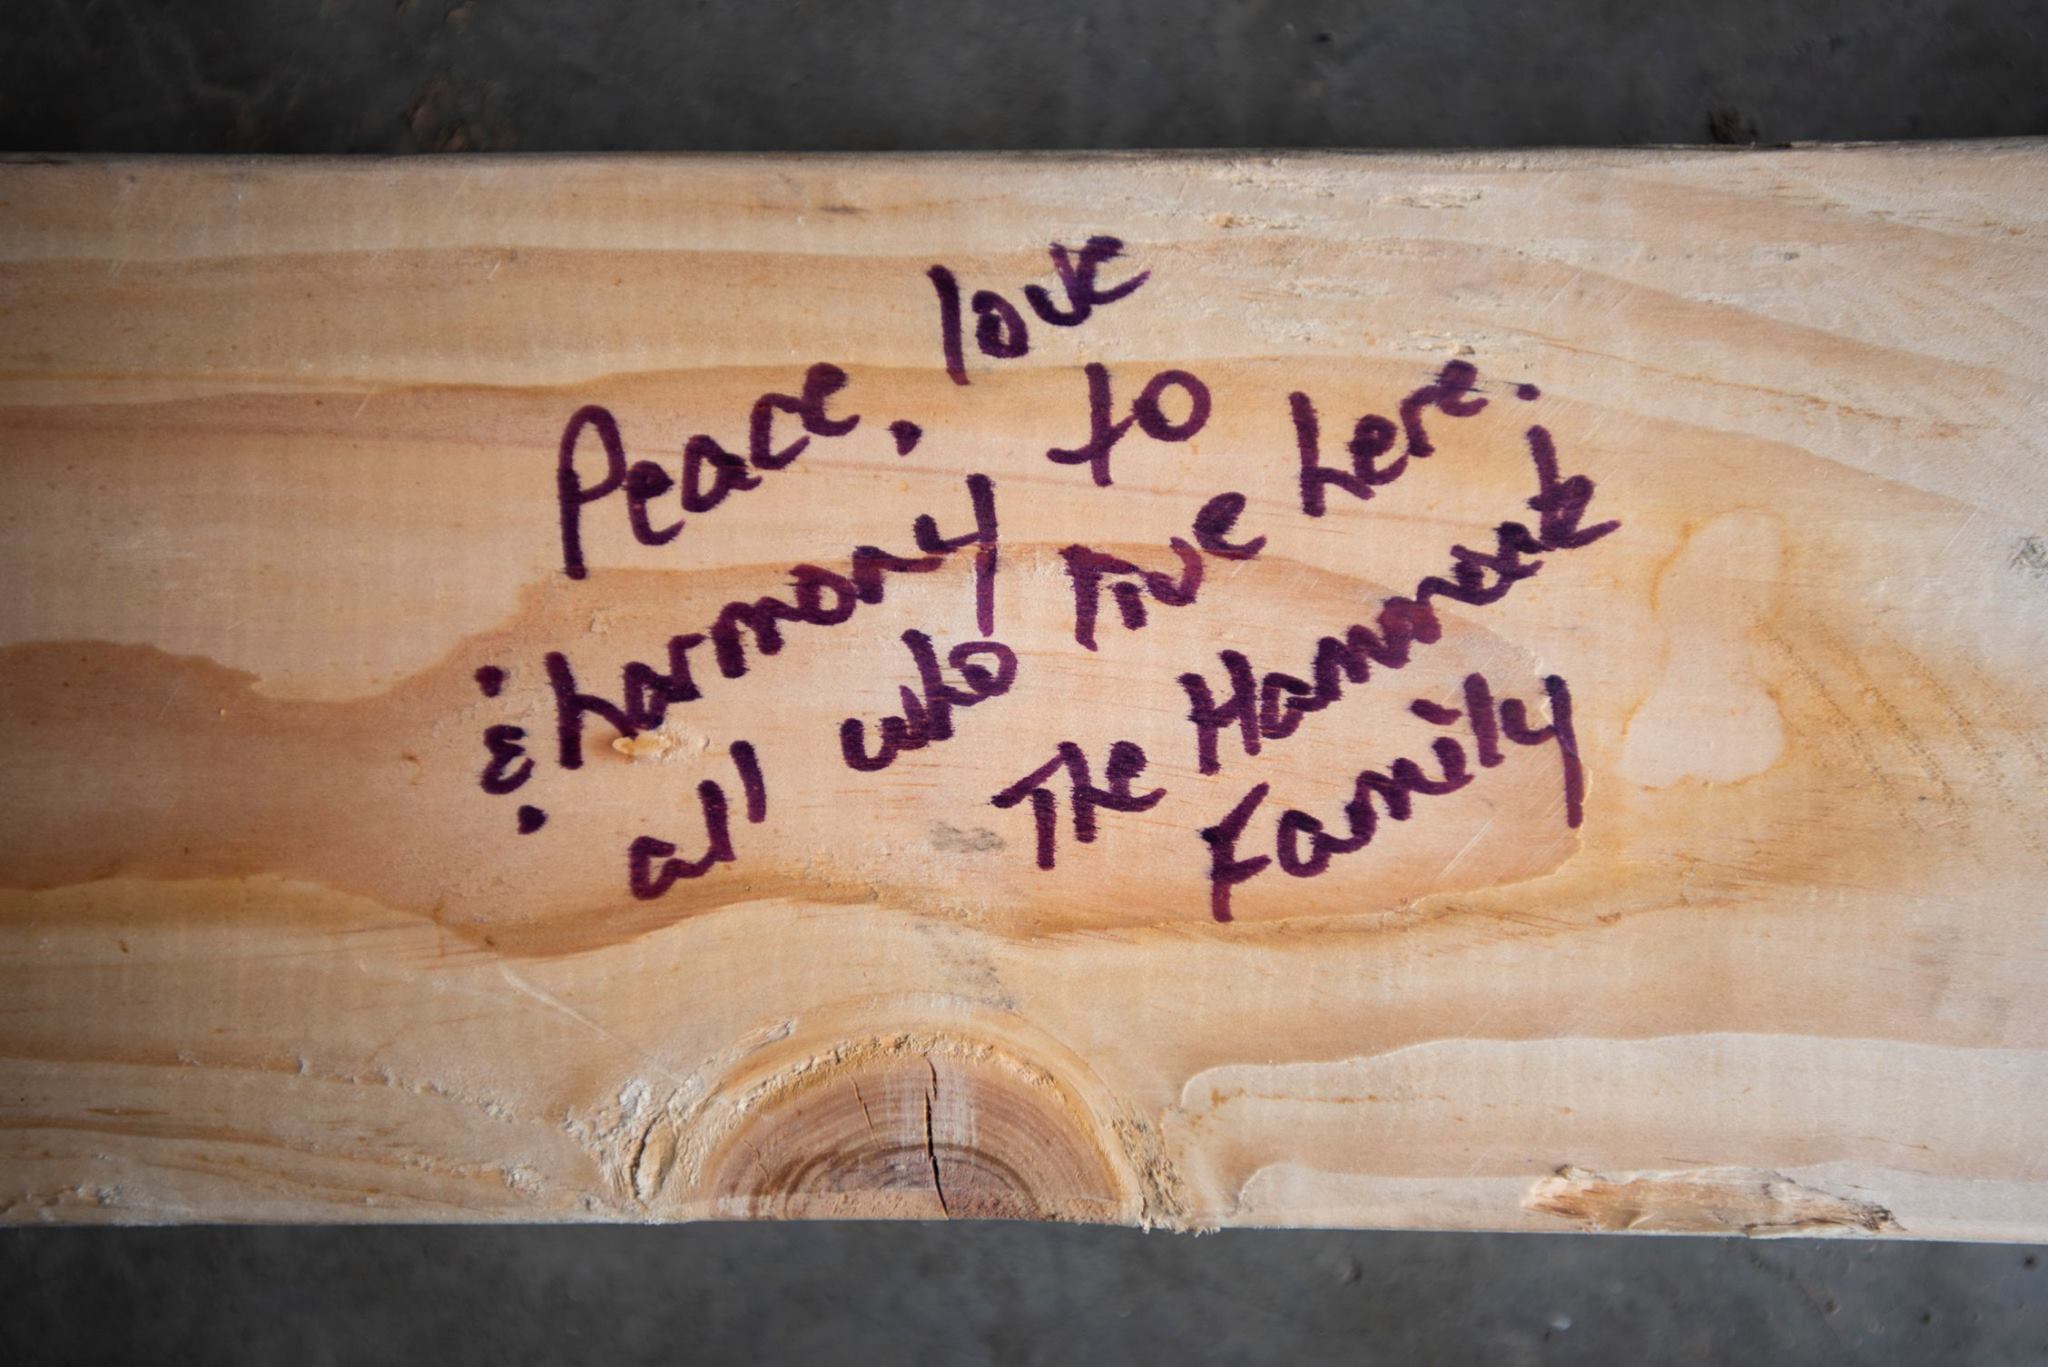 Peace, love
& harmony to
all who live here.
The Hammock
Family